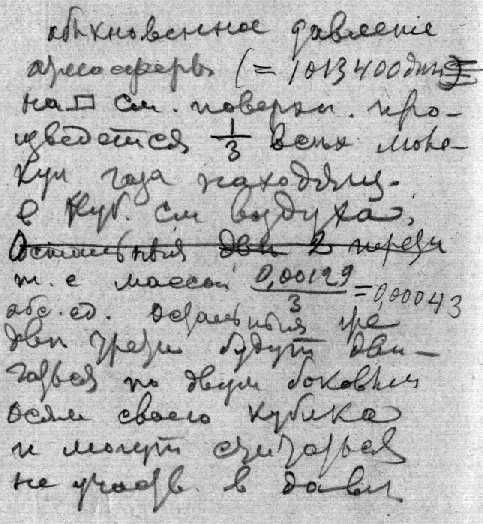 обыкновенное давление
атмосферы (= 1013400 дин)
на □ см. поверхн. про-
изведется 1/3 всех моле-
кул газа находящ.
в куб. см воздуха,
Остальныя две 2 трети
т. е массой 0,00129/3 = 0,00043
абс. ед. Остальныя тре
две трети будут дви-
гаться по двум боковым
осям своего кубика
и могут считаться
не участв. в давл